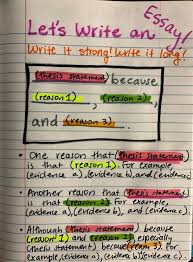 Let's Write an Essay!
Write it strong! Write it long!
(thesis statement) because
(reason 1), (reason 2),
and (reason 3).
• One reason that (thesis statement)
is that (reason 1). For example,
(evidence a), (evidence b), and (evidence c).
• Another reason that (thesis statement)
is that (reason 2). For example,
(evidence a), (evidence b), and (evidence c).
• Although (thesis statement), because
(reason 1) and (reason 2), especially
(thesis statement) because (reason 3). For
example, (evidence a), (evidence b), (evidence c).